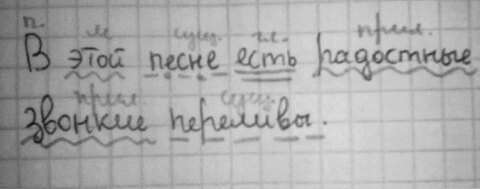 п. м сущ. гл. прил.
В этой песне есть радостные
прил. сущ.
звонкие переливы.